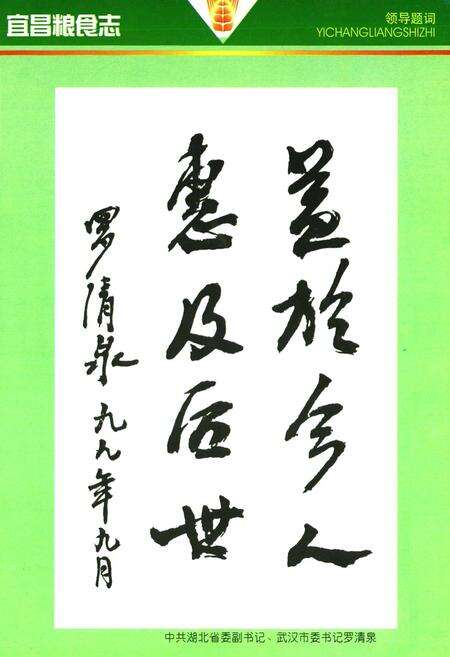 宜昌粮食志
领导题词
YICHANGLIANGSHIZHI
益於今人
惠及后世
罗清泉 九九年九月
中共湖北省委副书记、武汉市委书记罗清泉